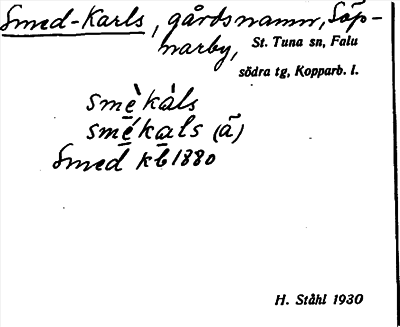 Smed-Karls, gårdsnamn, Söp-
narby, St. Tuna sn, Falu
södra tg, Kopparb. l.
smè̱kàls
smé̱ka̱ls (ã)
Smed kb 1880
H. Ståhl 1930